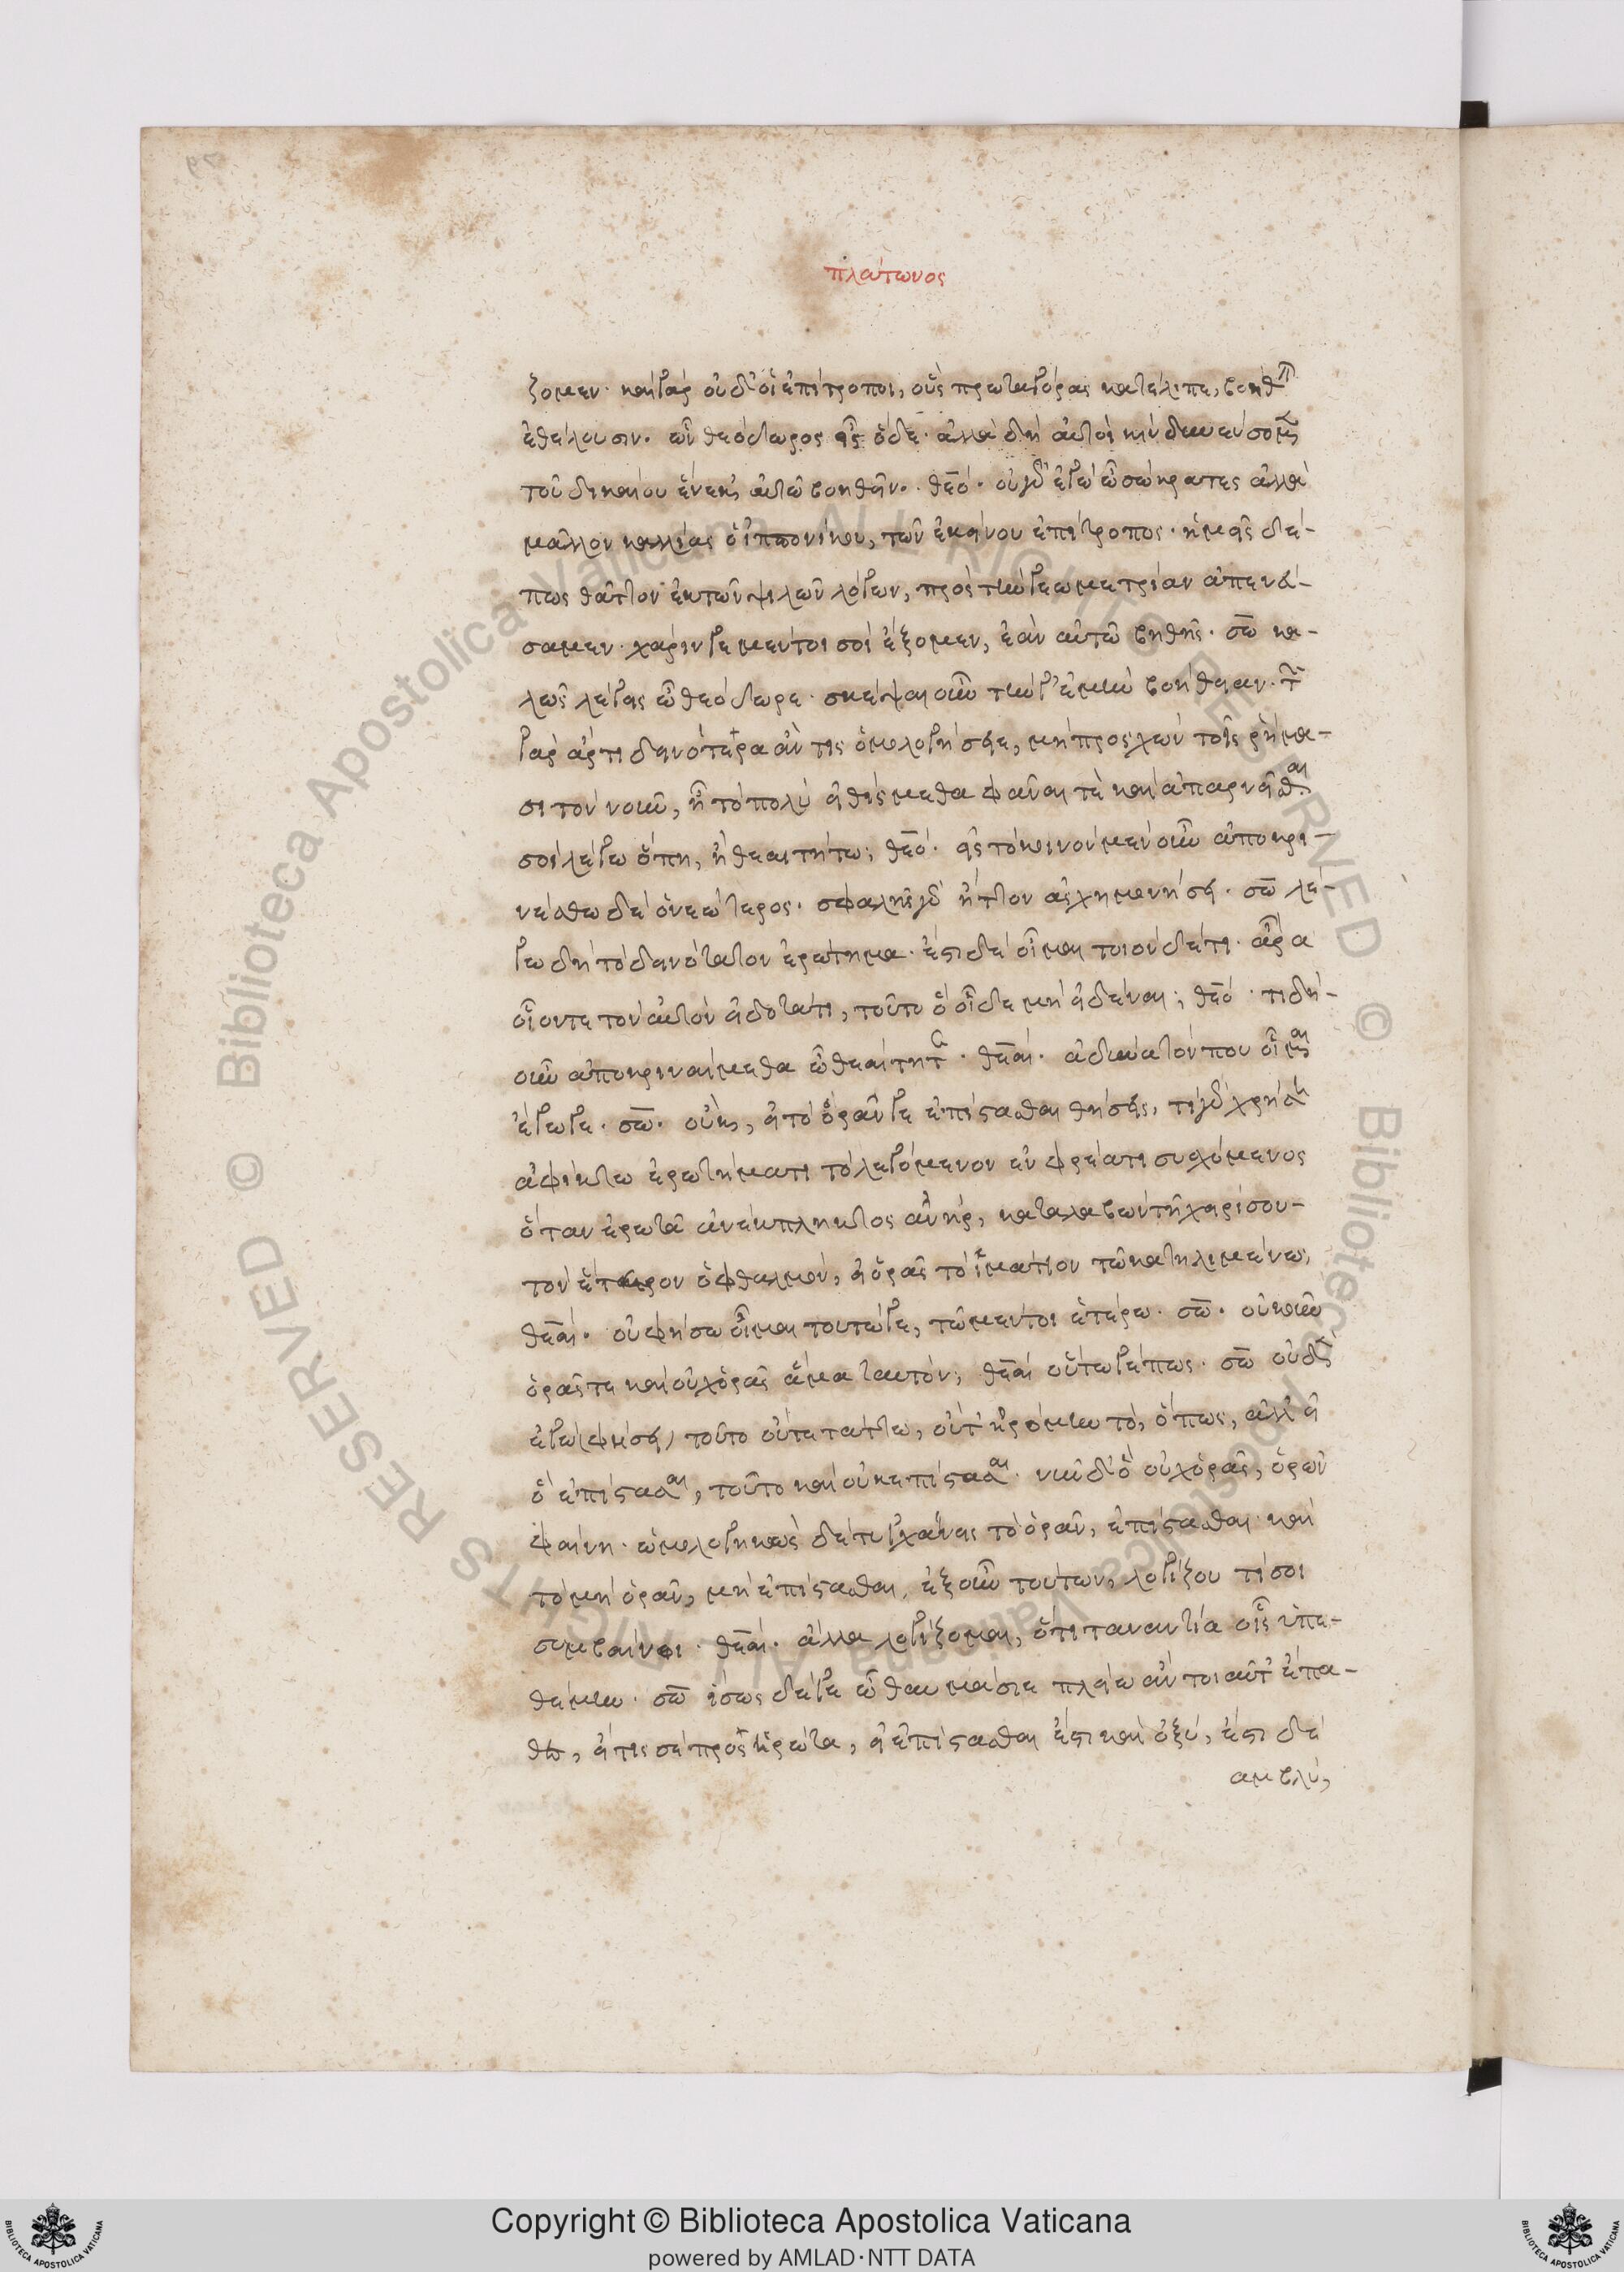 πλάτωνος
ζομεν· καὶ γὰρ οὐδ' οἱ ἐπίτροποι, οὓς πρωταγόρας κατέλιπε, βοηθεῖν
ἐθέλουσιν. ὧν θεόδωρος εἷς ὅδε· ἀλλὰ δὴ αὐτοὶ κινδυνεύσομεν
τοῦ δικαίου ἕνεκ' αὐτῶ βοηθεῖν. θεό. οὐ γὰρ ἐγὼ ὦ σώκρατες ἀλλὰ
μᾶλλον καλλίας ὁ ἱππονίκου, τῶν ἐκείνου ἐπίτροπος· ἡμεῖς δέ-
πως θᾶττον ἐκ τῶν ψιλῶν λόγων, πρὸς τὴν γεωμετρίαν ἀπενεύ-
σαμεν· χάριν γε μέντοι σοὶ ἕξομεν, ἐὰν αὐτῶ βοηθῆς. σω κα-
λῶς λέγεις ὦ θεόδωρε· σκέψαι οὖν τήν γ' ἐμὴν βοήθειαν. τῶν
γὰρ ἄρτι δεινότερα ἄν τις ὁμολογήσειε, μὴ προσχων τοῖς ῥήμα-
σι τὸν νοῦν, ἧ τὸ πολὺ εἰθίσμεθα φάναι τὲ καὶ ἀπαρνεῖσθαι.
σοὶ λέγω ὅπη, ἢ θεαιτήτω; θεό. εἰς τὸ κοινὸν μὲν οὖν ἀποκρι-
νέσθω δὲ ὁ νεώτερος. σφαλεὶς γὰρ ἧττον ἀσχημονήσει. σω λέ-
γω δὴ τὸ δεινότατον ἐρώτημα. ἔστι δὲ οἶμαι τοιόνδέ τι. ἆρα
οἷόν τε τὸν αὐτὸν εἰδότα τι, τοῦτο ὃ οἶδε μὴ εἰδέναι; θεό. τί δὴ
οὖν ἀποκρινούμεθα ὦ θεαίτητε. θεαί. ἀδύνατόν που οἶμαι
ἔγωγε. σω. οὔκ, εἰ τὸ ὁρᾶν γε ἐπίστασθαι θήσεις, τί γὰρ χρήσει
ἀφύκτω ἐρωτήματι τὸ λεγόμενον ἐν φρέατι συσχόμενος
ὅταν ἐρωτᾶ ἀνέκπληκτος ἀνήρ, καταλαβὼν τῆ χειρί σου
τὸν ἕτερον ὀφθαλμόν, εἰ ὁρᾶς τὸ ἱμάτιον τῶ κατειλημμένω,
θεαί. οὐ φήσω οἶμαι τούτω γε, τῶ μέντοι ἑτέρω. σω. οὐκοῦν
ὁρᾶς τε καὶ οὐχ ὁρᾶς ἅμα ταυτόν; θεαί οὕτω γέ πως. σω οὐδὲν
ἐγὼ (φήσει) τοῦτο οὔτε τάττω, οὔτ' ἠρόμην τό, ὅπως, ἀλλ' εἰ
ὃ ἐπίστασαι, τοῦτο καὶ οὐκ ἐπίστασαι. νῦν δ' ὃ οὐχ ὁρᾶς, ὁρῶν
φαίνη. ὡμολογηκὼς δὲ τυγχάνεις τὸ ὁρᾶν, ἐπίστασθαι· καὶ
τὸ μὴ ὁρᾶν, μὴ ἐπίστασθαι, ἐξ οὖν τούτων, λογίζου τί σοι
συμβαίνει. θεαί. ἀλλὰ λογίζομαι, ὅτι τἀναντία οἷς ὑπε-
θέμην. σω ἴσως δέ γε ὦ θαυμάσιε πλείω ἂν τοιαῦτ' ἔπα-
θες, εἴ τις σὲ προσηρώτα, εἰ ἐπίστασθαι ἔστι καὶ ὀξύ, ἔστι δὲ
ἀμβλύ,
Copyright © Biblioteca Apostolica Vaticana
powered by AMLAD·NTT DATA